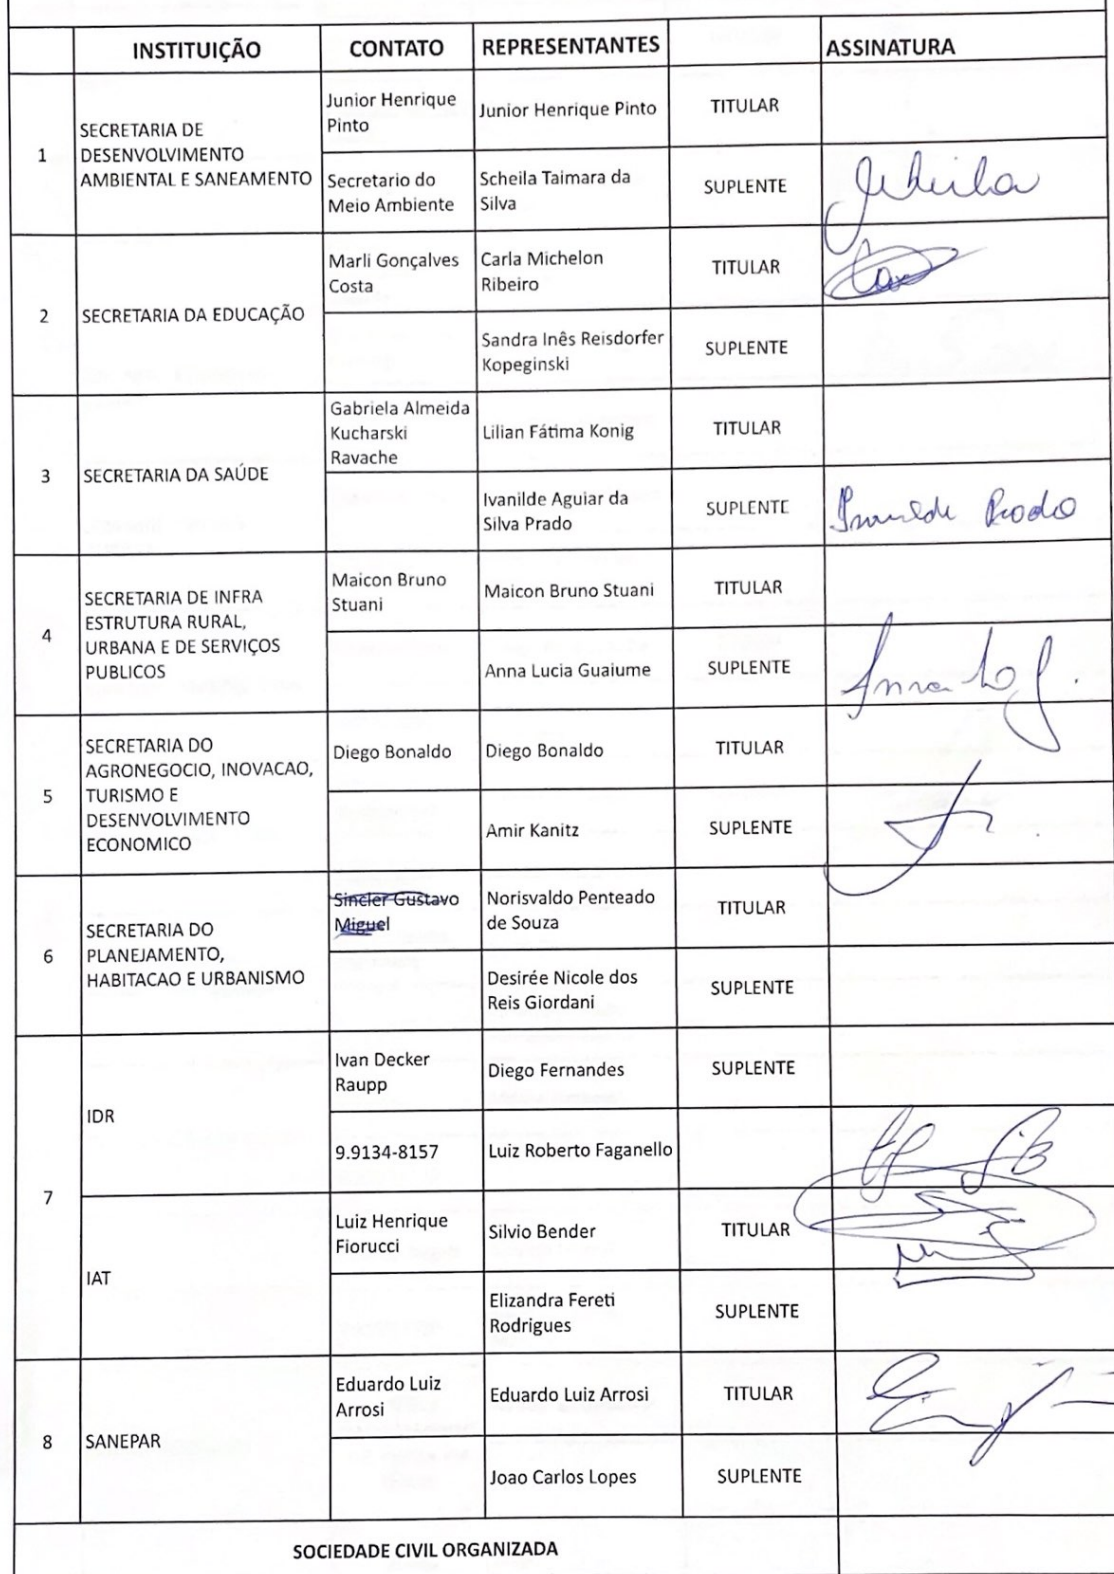 INSTITUIÇÃO CONTATO REPRESENTANTES ASSINATURA
1
SECRETARIA DE
DESENVOLVIMENTO
AMBIENTAL E SANEAMENTO
Junior Henrique
Pinto
Junior Henrique Pinto
TITULAR
Secretario do
Meio Ambiente
Scheila Taimara da
Silva
SUPLENTE
2
SECRETARIA DA EDUCAÇÃO
Marli Gonçalves
Costa
Carla Michelon
Ribeiro
TITULAR
Sandra Inês Reisdorfer
Kopeginski
SUPLENTE
3
SECRETARIA DA SAÚDE
Gabriela Almeida
Kucharski
Ravache
Lilian Fátima Konig
TITULAR
Ivanilde Aguiar da
Silva Prado
SUPLENTE
Ivanilde Prado
4
SECRETARIA DE INFRA
ESTRUTURA RURAL,
URBANA E DE SERVIÇOS
PUBLICOS
Maicon Bruno
Stuani
Maicon Bruno Stuani
TITULAR
Anna Lucia Guaiume
SUPLENTE
Anna
5
SECRETARIA DO
AGRONEGOCIO, INOVACAO,
TURISMO E
DESENVOLVIMENTO
ECONOMICO
Diego Bonaldo
Diego Bonaldo
TITULAR
Amir Kanitz
SUPLENTE
6
SECRETARIA DO
PLANEJAMENTO,
HABITACAO E URBANISMO
Sincler Gustavo
Miguel
Norisvaldo Penteado
de Souza
TITULAR
Desirée Nicole dos
Reis Giordani
SUPLENTE
7
IDR
Ivan Decker
Raupp
Diego Fernandes
SUPLENTE
9.9134-8157
Luiz Roberto Faganello
IAT
Luiz Henrique
Fiorucci
Silvio Bender
TITULAR
Elizandra Fereti
Rodrigues
SUPLENTE
8
SANEPAR
Eduardo Luiz
Arrosi
Eduardo Luiz Arrosi
TITULAR
Joao Carlos Lopes
SUPLENTE
SOCIEDADE CIVIL ORGANIZADA